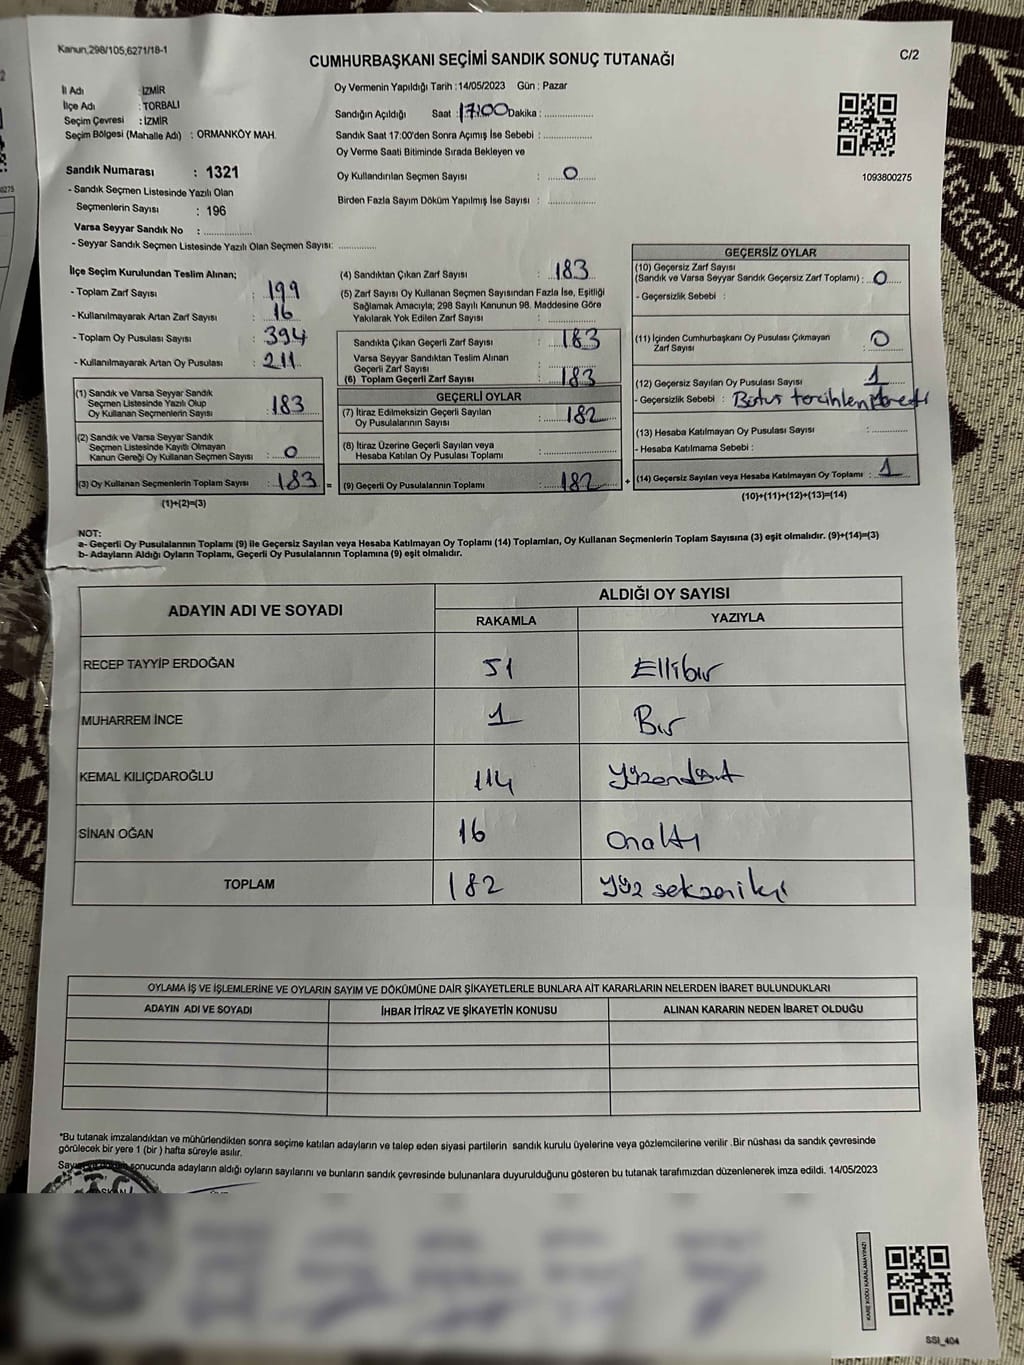 Kanun,298/105,6271/18-1
C/2
CUMHURBAŞKANI SEÇİMİ SANDIK SONUÇ TUTANAĞI
İl Adı : İZMİR
İlçe Adı : TORBALI
Seçim Çevresi : İZMİR
Seçim Bölgesi (Mahalle Adı) : ORMANKÖY MAH.
Sandık Numarası : 1321
- Sandık Seçmen Listesinde Yazılı Olan
Seçmenlerin Sayısı : 196
Varsa Seyyar Sandık No : ..............
- Seyyar Sandık Seçmen Listesinde Yazılı Olan Seçmen Sayısı: ............
Oy Vermenin Yapıldığı Tarih :14/05/2023 Gün : Pazar
Sandığın Açıldığı Saat :17:00 Dakika : ..............
Sandık Saat 17:00'den Sonra Açımış İse Sebebi : ..............
Oy Verme Saati Bitiminde Sırada Bekleyen ve
Oy Kullandırılan Seçmen Sayısı : 0
Birden Fazla Sayım Döküm Yapılmış İse Sayısı : ..............
1093800275
İlçe Seçim Kurulundan Teslim Alınan;
- Toplam Zarf Sayısı : 199
- Kullanılmayarak Artan Zarf Sayısı : 16
- Toplam Oy Pusulası Sayısı : 394
- Kullanılmayarak Artan Oy Pusulası : 211
(1) Sandık ve Varsa Seyyar Sandık
Seçmen Listesinde Yazılı Olup
Oy Kullanan Seçmenlerin Sayısı : 183
(2) Sandık ve Varsa Seyyar Sandık
Seçmen Listesinde Kayıtlı Olmayan
Kanun Gereği Oy Kullanan Seçmen Sayısı : 0
(3) Oy Kullanan Seçmenlerin Toplam Sayısı : 183 =
(1)+(2)=(3)
(4) Sandıktan Çıkan Zarf Sayısı : 183
(5) Zarf Sayısı Oy Kullanan Seçmen Sayısından Fazla İse, Eşitliği
Sağlamak Amacıyla; 298 Sayılı Kanunun 98. Maddesine Göre
Yakılarak Yok Edilen Zarf Sayısı : ..............
Sandıkta Çıkan Geçerli Zarf Sayısı : 183
Varsa Seyyar Sandıktan Teslim Alınan
Geçerli Zarf Sayısı : ..............
(6) Toplam Geçerli Zarf Sayısı : 183
GEÇERLİ OYLAR
(7) İtiraz Edilmeksizin Geçerli Sayılan
Oy Pusulasının Sayısı : 182
(8) İtiraz Üzerine Geçerli Sayılan veya
Hesaba Katılan Oy Pusulası Toplamı : ..............
(9) Geçerli Oy Pusulalarının Toplamı : 182 +
GEÇERSİZ OYLAR
(10) Geçersiz Zarf Sayısı
(Sandık ve Varsa Seyyar Sandık Geçersiz Zarf Toplamı) : 0
- Geçersizlik Sebebi :
(11) İçinden Cumhurbaşkanı Oy Pusulası Çıkmayan
Zarf Sayısı : 0
(12) Geçersiz Sayılan Oy Pusulası Sayısı : 1
- Geçersizlik Sebebi :
(13) Hesaba Katılmayan Oy Pusulası Sayısı : ..............
- Hesaba Katılmama Sebebi :
(14) Geçersiz Sayılan veya Hesaba Katılmayan Oy Toplamı : 1
(10)+(11)+(12)+(13)=(14)
NOT:
a- Geçerli Oy Pusulalarının Toplamı (9) ile Geçersiz Sayılan veya Hesaba Katılmayan Oy Toplamı (14) Toplamları, Oy Kullanan Seçmenlerin Toplam Sayısına (3) eşit olmalıdır. (9)+(14)=(3)
b- Adayların Aldığı Oyların Toplamı, Geçerli Oy Pusulalarının Toplamına (9) eşit olmalıdır.
ADAYIN ADI VE SOYADI
ALDIĞI OY SAYISI
RAKAMLA YAZIYLA
RECEP TAYYİP ERDOĞAN 51 Ellibir
MUHARREM İNCE 1 Bir
KEMAL KILIÇDAROĞLU 114 Yüzondört
SİNAN OĞAN 16 onaltı
TOPLAM 182 Yüz seksen iki
OYLAMA İŞ VE İŞLEMLERİNE VE OYLARIN SAYIM VE DÖKÜMÜNE DAİR ŞİKAYETLERLE BUNLARA AİT KARARLARIN NELERDEN İBARET BULUNDUKLARI
ADAYIN ADI VE SOYADI İHBAR İTİRAZ VE ŞİKAYETİN KONUSU ALINAN KARARIN NEDEN İBARET OLDUĞU
*Bu tutanak imzalandıktan ve mühürlendikten sonra seçime katılan adayların ve talep eden siyasi partilerin sandık kurulu üyelerine veya gözlemcilerine verilir .Bir nüshası da sandık çevresinde
görülecek bir yere 1 (bir ) hafta süreyle asılır.
sonucunda adayların aldığı oyların sayılarını ve bunların sandık çevresinde bulunanlara duyurulduğunu gösteren bu tutanak tarafımızdan düzenlenerek imza edildi. 14/05/2023
KARE KODU KARALAMAYINIZ!
SSİ_404